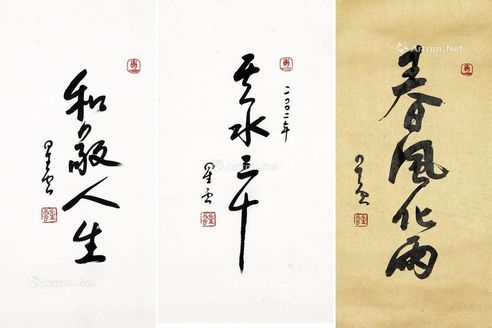 和敬人生
星雲
云水三千
二〇〇二年
星雲
春風化雨
星雲
Artron.Net